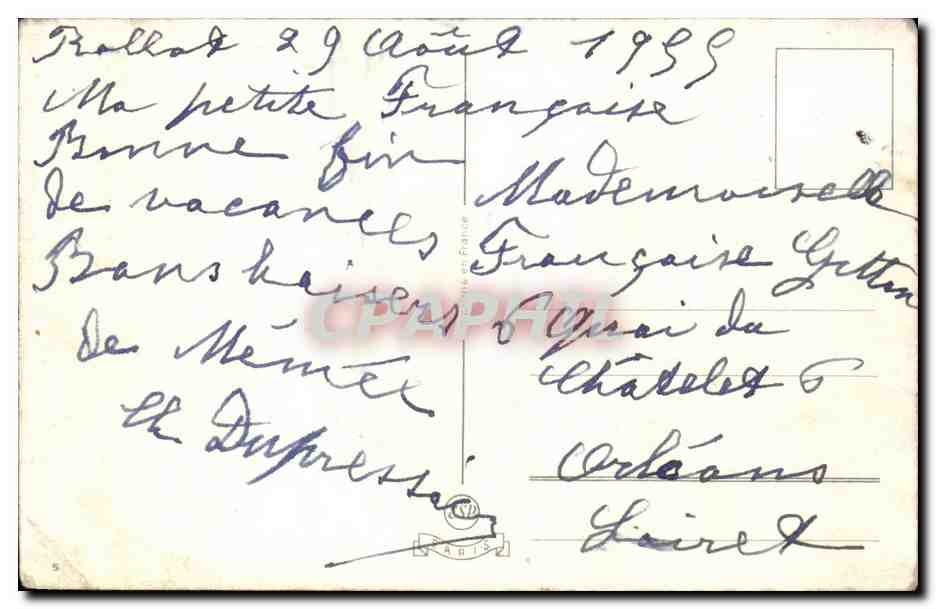 Rollot 29 Août 1955
Ma petite Française
Bonne fin
de vacances
Bons baisers
de Mémée
Ch Dupressoir
Mademoiselle
Française
6 Quai du
Châtelet 6
Orléans
Loiret
en France
CPAPHIL
PARIS
5